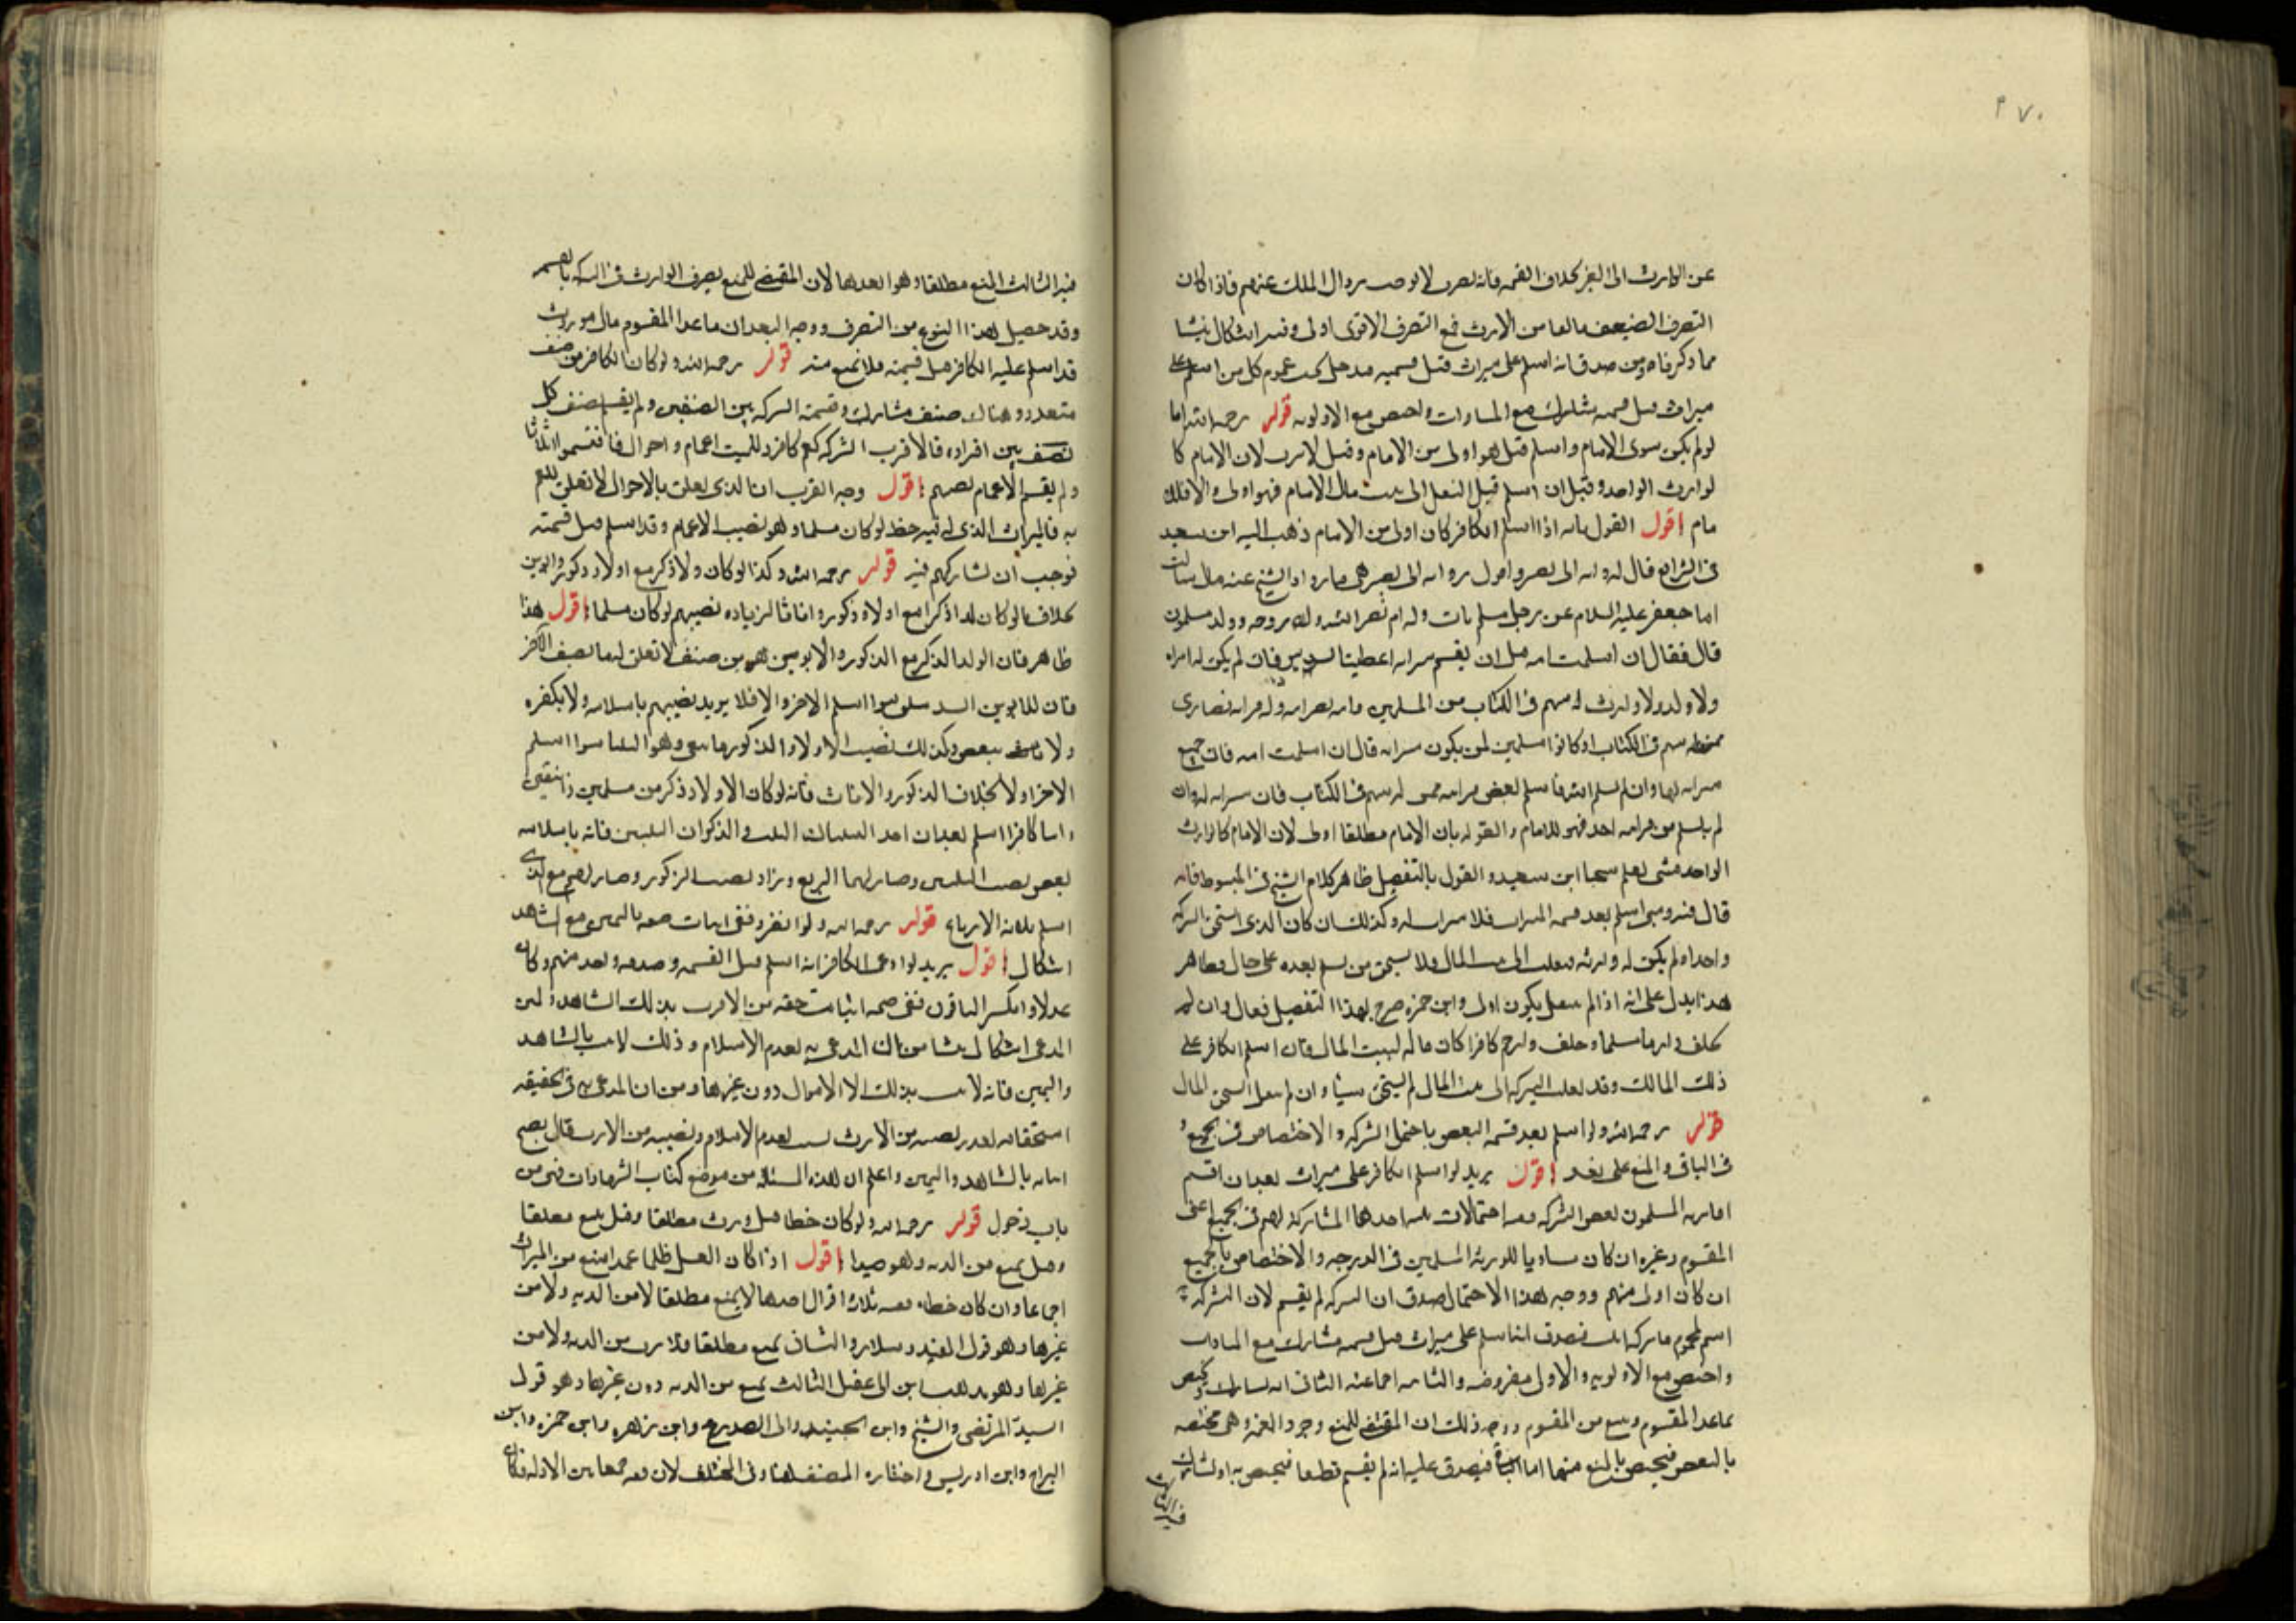 ٢٧٠
عن الوارث الى الغير بخلاف القسمه فانه تصرف لا يوجب زوال الملك عنهم فاذا كان
التصرف الضعيف مانعا من الارث فمع التصرف الاقوى اولى وفيه اشكال ينشا
مما ذكرناه ومن صدق انه اسلم على ميراث قبل قسمته فيدخل تحت عموم كل من اسلم على
ميراث قبل قسمه شارك مع المساوات واختص مع الاولويه قوله رحمه الله اما
لو لم يكن سوى الامام واسلم قيل هو اولى من الامام وقيل لا يرث لان الامام كا
لوارث الواحد وقيل ان اسلم قبل النقل الى بيت مال الامام فهو اولى والا فللا
مام اقول القول بانه اذا اسلم الكافر كان اولى من الامام ذهب اليه ابن سعيد
فى الشرائع قال لروايه ابى بصير واقول روايه ابى بصير هى ما رواه الشيخ عنه قال سالت
ابا جعفر عليه السلام عن رجل مسلم مات وله ام نصرانيه وله زوجه وولد مسلمون
قال فقال ان اسلمت امه قبل ان يقسم ميراثه اعطيت السدس فان لم يكن له امراه
ولا ولد ولا وارث له سهم فى الكتاب من المسلمين وامه نصرانيه وله قرابه نصارى
ممن له سهم فى الكتاب لو كانوا مسلمين لمن يكون ميراثه قال ان اسلمت امه فان جميع
ميراثه لها وان لم تسلم امه واسلم بعض قرابته ممن له سهم فى الكتاب فان ميراثه له وان
لم يسلم من قرابته احد فهو للامام والقول بان الامام مطلقا اولى لان الامام كالوارث
الواحد شى نقله شيخنا ابن سعيد والقول بالتفصيل ظاهر كلام الشيخ فى المبسوط فانه
قال فيه ومتى اسلم بعد قسمه الميراث فلا ميراث له وكذلك ان كان الذى استحق التركه
واحدا ولم يكن له ورثه فنقلت الى بيت المال فلا يستحق من يسلم بعده على حال وظاهر
هذا يدل على انه اذا لم ينقل يكون اولى وابن حمزه صرح بهذا التفصيل فقال وان لم
يخلف وارثا مسلما وخلف وارثا كافرا كان ماله لبيت المال فان اسلم الكافر على
ذلك المال وقد نقلت التركه الى بيت المال لم يستحق شيئا وان لم ينقل استحق المال
قوله رحمه الله ولو اسلم بعد قسمه البعض احتمل الشركه والاختصاص فى الجميع و
فى الباقى والمنع على بعد اقول يريد لو اسلم الكافر على ميراث بعد ان اقتسم
اقاربه المسلمون بعض التركه ففيه احتمالات ثلثه احدها المشاركه لهم فى الجميع اعنى
المقسوم وغيره ان كان مساويا للورثه المسلمين فى الدرجه والاختصاص بالجميع
ان كان اولى منهم ووجه هذا الاحتمال صدق ان التركه لم تقسم لان التركه
اسم لمجموع ما تركه الميت فيصدق انه اسلم على ميراث قبل قسمه فشارك مع المساوات
واختص مع الاولويه والاولى مفروضه والثانيه اجماعيه الثانى انه يشارك او يختص
بما عدا المقسوم ويمنع من المقسوم ووجه ذلك ان المقتضى للمنع وجود القسمه وهى مختصه
بالبعض فيختص بالمنع منها اما الباقى فيصدق عليه انه لم يقسم قطعا فيختص به او يشارك
فيه الثالث
فيه الثالث المنع مطلقا وهو ابعدها لان المقتضى للمنع تصرف الوارث فى التركه بالقسمه
وقد حصل هذا النوع من التصرف ووجه البعد ان ما عدا المقسوم مال موروث
قد اسلم عليه الكافر قبل قسمته فلا يمنع منه قوله رحمه الله ولو كان الكافر من صنف
متعدد وهناك صنف مشارك وقسمت التركه بين الصنفين ولم يقسم صنف كل
نصف بين افراده فالاقرب الشركه كعم كافر وللميت اعمام واخوال فاقتسموا اثلاثا
ولم يقسم الاعمام نصيبهم اقول وجه القرب ان الذى تعلق بالاخوال لا تعلق للعم
به فالميراث الذى له فيه حظ لو كان مسلما وهو نصيب الاعمام وقد اسلم قبل قسمته
فوجب ان يشاركهم فيه قوله رحمه الله وكذا لو كان ولدا ذكر مع اولاد ذكور وابوين
بخلاف ما لو كان ولدا ذكرا مع اولاد ذكور واناثا لزياده نصيبهم لو كان مسلما اقول هذا
ظاهر فان الولد الذكر مع الذكور والابوين هو من صنف لا تعلق لهما بصنف الاخر
فان للابوين السدسين سواء اسلم الاخر والا فلا يزيد نصيبهم باسلامه ولا بكفره
ولا ينقص وكذلك نصيب الاولاد الذكور ما بقى وهو الثلثان سواء اسلم
الاخر او لا بخلاف الذكور والاناث فانه لو كان الاولاد ذكرين مسلمين وانثيين
وابنا كافرا اسلم بعد ان اخذ البنتان الثلث والذكران الثلثين فانه باسلامه
ينقص نصيب البنتين وصار لهما الربع وزاد نصيب الذكور وصار لهم مع الذى
اسلم ثلاثه الارباع قوله رحمه الله ولو انفرد ففى اثبات حقه باليمين مع الشاهد
اشكال اقول يريد لو ادعى الكافر انه اسلم قبل القسمه وصدقه واحد منهم وكان
عدلا وانكر الباقون ففى صحه اثبات حقه من الارث بذلك الشاهد ويمين
المدعى اشكال ينشا من ان المدعى به تقدم الاسلام وذلك لا يثبت بالشاهد
واليمين فانه لا يثبت بذلك الا الاموال دون غيرها ومن ان المدعى به فى الحقيقه
استحقاقه لقدر نصيبه من الارث بسبب تقدم الاسلام ونصيبه من الارث مال يصح
اثباته بالشاهد واليمين واعلم ان هذه المسئله من موضع كتاب الشهادات فهى من
باب دخول قوله رحمه الله ولو كان خطا قيل ورث مطلقا وقيل يمنع مطلقا
وقيل يمنع من الديه وهو جيد اقول اذا كان القتل ظلما عمدا منع من الميراث
اجماعا وان كان خطاء ففيه ثلاث اقوال احدها لا يمنع مطلقا لا من الديه ولا من
غيرها وهو قول المفيد وسلار والثانى يمنع مطلقا فلا يرث من الديه ولا من
غيرها وهو مذهب ابن ابى عقيل الثالث يمنع من الديه دون غيرها وهو قول
السيد المرتضى والشيخ وابن الجنيد وابى الصلاح وابن زهره وابن حمزه وابن
البراج وابن ادريس واختاره المصنف هنا وفى المختلف لان فيه جمعا بين الادله فكان